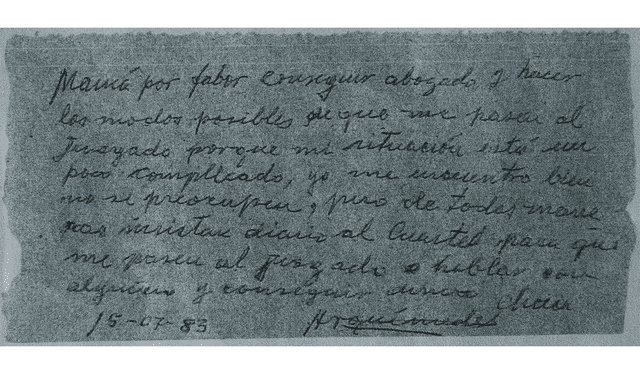 Mamá por fabor conseguir abogado y hacer
los modos posibles de que me pasen al
Juzgado porque mi situación está un
poco complicado, yo me encuentro bien
no se preocupen, pero de todas mane
ras insistan diario al Cuartel para que
me pasen al juzgado o hablar con
alguien y conseguir dinero Chau
15-07-83 Arquímedes